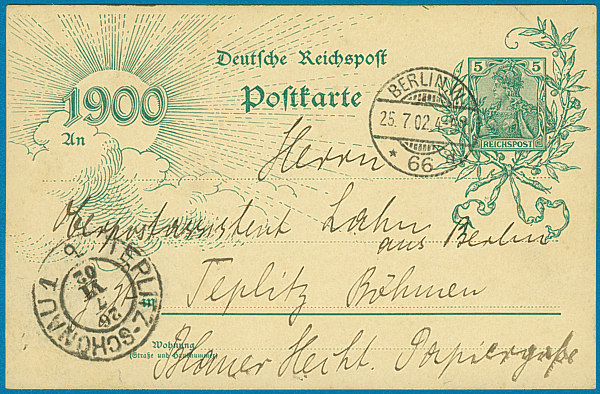 Deutsche Reichspost
Postkarte
1900
An
5 5
REICHSPOST
BERLIN W
25.7.02.4
* 66
Herrn
Oberpostassistent Lahn
aus Berlin
z. Zt. in Teplitz Böhmen
TEPLITZ-SCHÖNAU 1
26
VII
02
9
Wohnung
(Straße und Hausnummer)
Blauer Hecht. Papiergasse